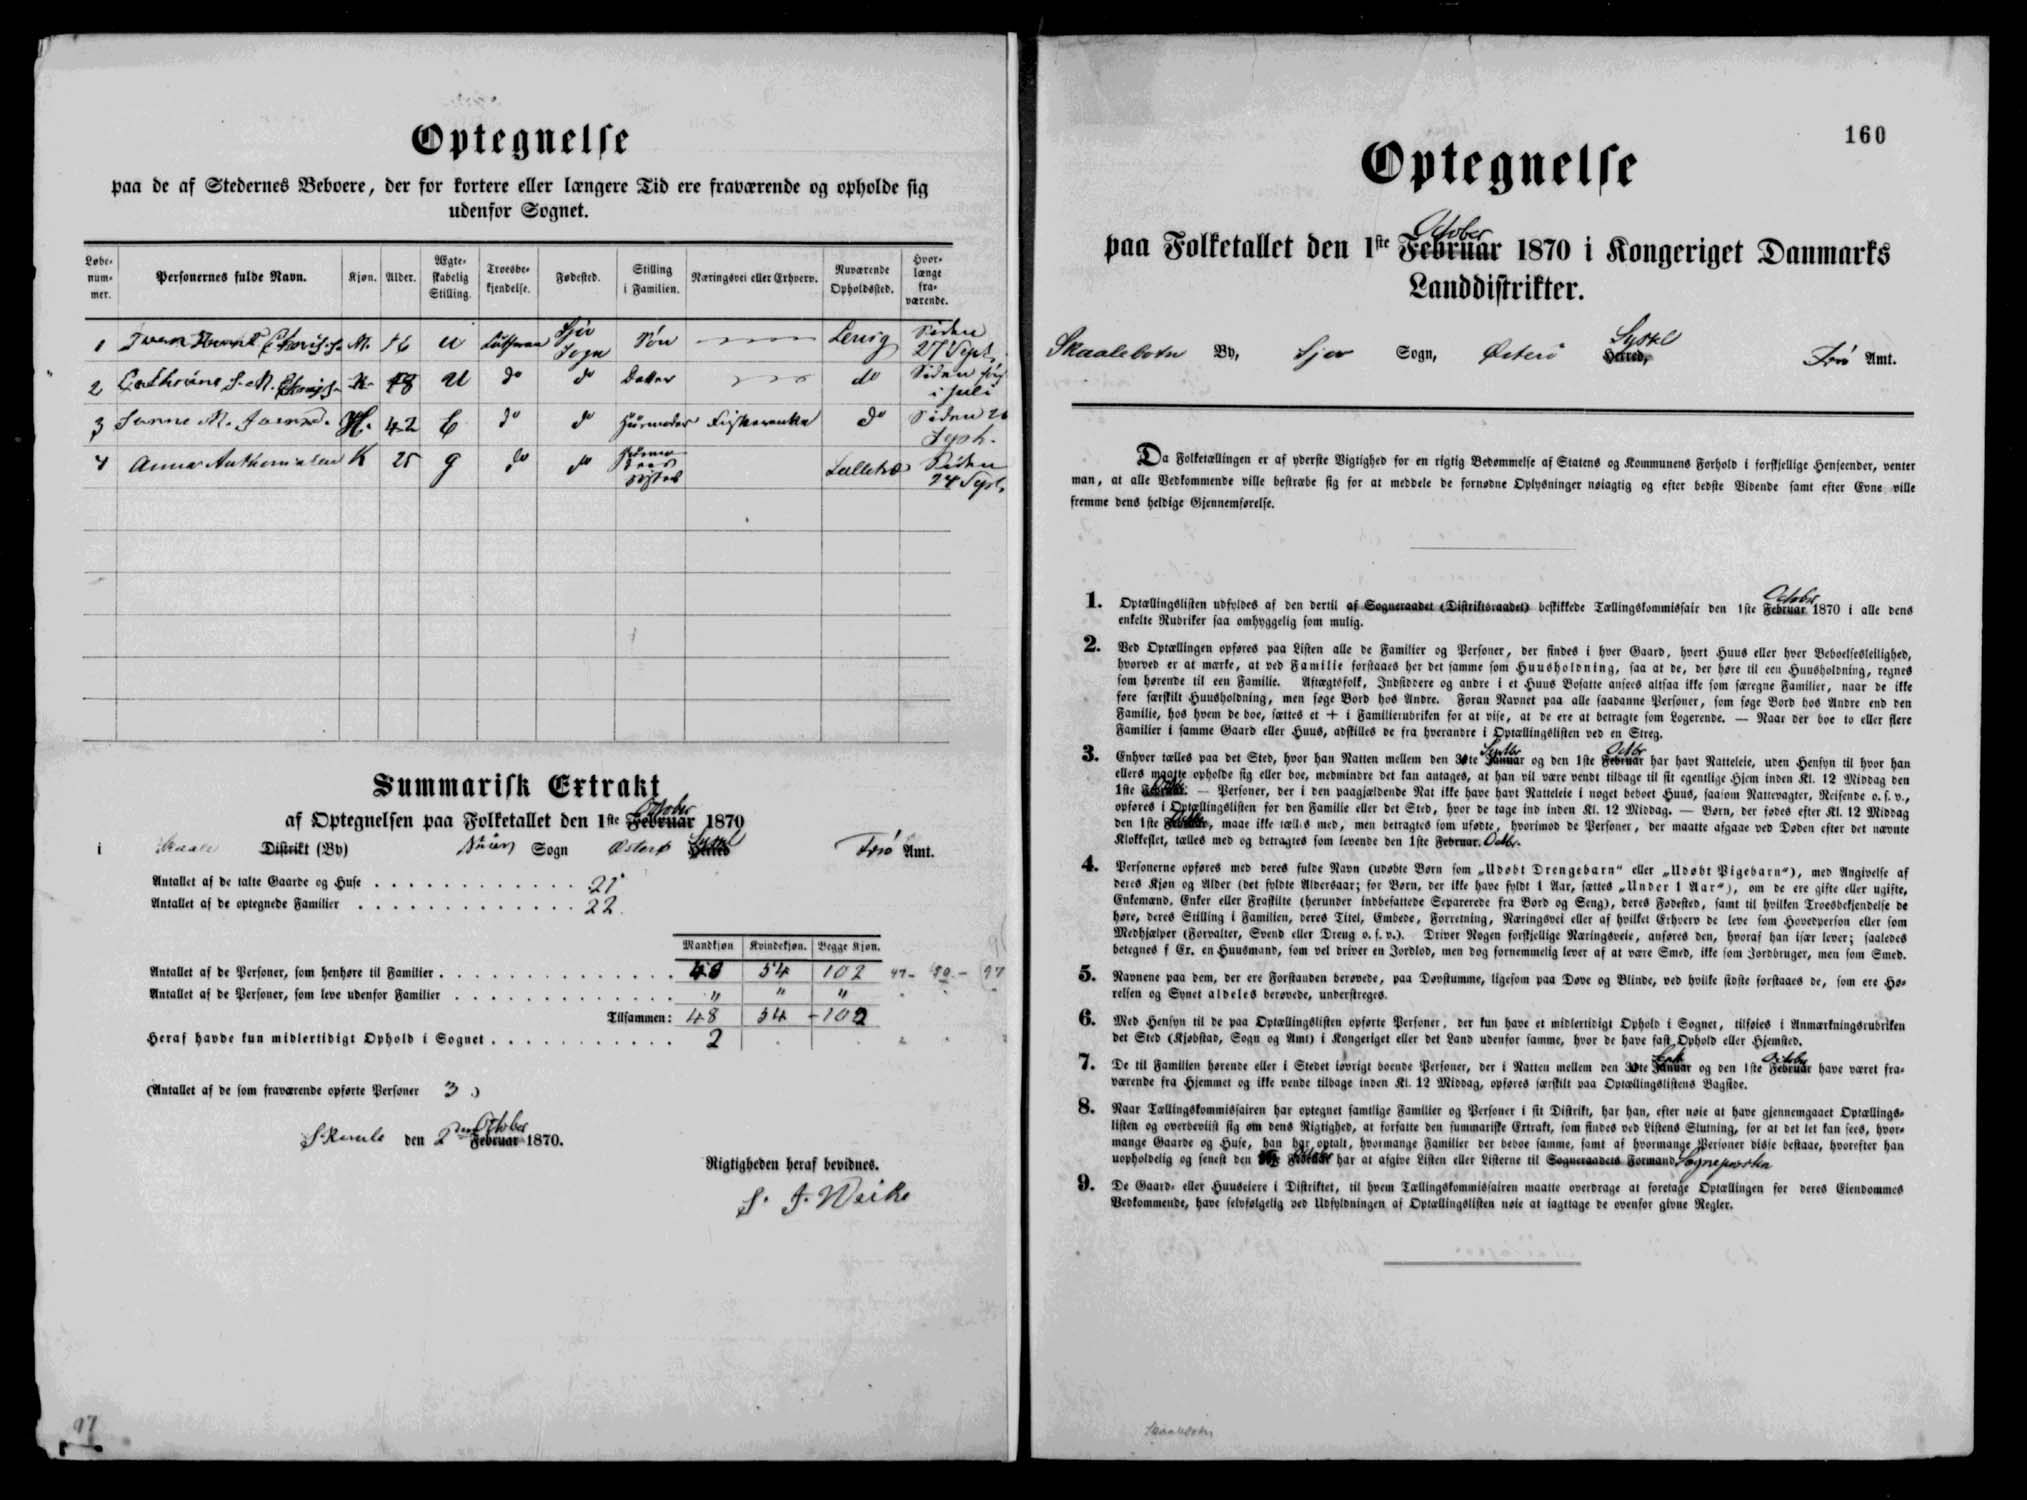 Optegnelse
paa de af Stedernes Beboere, der for kortere eller længere Tid ere fraværende og opholde sig
udenfor Sognet.
Løbe-nummer. Personernes fulde Navn. Kjøn. Alder. Ægteskabelig Stilling. Troesbekjendelse. Fødested. Stilling i Familien. Næringsvei eller Erhverv. Nuværende Opholdssted. Hvorlænge fraværende.
1 M. 16 U Sogn Søn Siden 27 Sept.
2 K. 18 U do do Datter do Siden i Juli
3 K. 42 E do do Huusmoder do Siden Sept.
4 Anna K 25 g do do Siden 24 Sept.
Summarisk Extrakt
af Optegnelsen paa Folketallet den 1ste Februar October 1870
i Skaale Distrikt (By) Sogn Østerø Herred Syssel Færø Amt.
Antallet af de talte Gaarde og Huse 21
Antallet af de optegnede Familier 22
Mandkjøn Kvindekjøn. Begge Kjøn.
Antallet af de Personer, som henhøre til Familier 48 54 102 47 50 97
Antallet af de Personer, som leve udenfor Familier " " "
Tilsammen: 48 54 102
Heraf havde kun midlertidigt Ophold i Sognet 2
(Antallet af de som fraværende opførte Personer 3)
Skaale den 2den Februar October 1870.
Rigtigheden heraf bevidnes.
S. J. Weihe
97
160
Optegnelse
paa Folketallet den 1ste Februar October 1870 i Kongeriget Danmarks
Landdistrikter.
Skaalebotn By, Sjov Sogn, Østerø Herred, Syssel Færø Amt.
Da Folketællingen er af yderste Vigtighed for en rigtig Bedømmelse af Statens og Kommunens Forhold i forskjellige Henseender, venter
man, at alle Vedkommende ville bestræbe sig for at meddele de fornødne Oplysninger nøiagtig og efter bedste Vidende samt efter Evne ville
fremme dens heldige Gjennemførelse.
1. Optællingslisten udfyldes af den dertil af Sogneraadet (Distriktsraadet) beskikkede Tællingskommissair den 1ste Februar October 1870 i alle dens
enkelte Rubriker saa omhyggelig som mulig.
2. Ved Optællingen opføres paa Listen alle de Familier og Personer, der findes i hver Gaard, hvert Huus eller hver Beboelsesleilighed,
hvorved er at mærke, at ved Familie forstaaes her det samme som Huusholdning, saa at de, der høre til een Huusholdning, regnes
som hørende til een Familie. Aftægtsfolk, Indsiddere og andre i et Huus Bosatte ansees altsaa ikke som særegne Familier, naar de ikke
føre særskilt Huusholdning, men søge Bord hos Andre. Foran Navnet paa alle saadanne Personer, som søge Bord hos Andre end den
Familie, hos hvem de boe, sættes et + i Familierubriken for at vise, at de ere at betragte som Logerende. — Naar der boe to eller flere
Familier i samme Gaard eller Huus, adskilles de fra hverandre i Optællingslisten ved en Streg.
3. Enhver tælles paa det Sted, hvor han Natten mellem den 30te Januar Septbr og den 1ste Februar Octbr har havt Natteleie, uden Hensyn til hvor han
ellers maatte opholde sig eller boe, medmindre det kan antages, at han vil være vendt tilbage til sit egentlige Hjem inden Kl. 12 Middag den
1ste Februar. — Personer, der i den paagjældende Nat ikke have havt Natteleie i noget beboet Huus, saasom Nattevagter, Reisende o. s. v.,
opføres i Optællingslisten for den Familie eller det Sted, hvor de tage ind inden Kl. 12 Middag. — Børn, der fødes efter Kl. 12 Middag
den 1ste Februar, maae ikke tælles med, men betragtes som ufødte, hvorimod de Personer, der maatte afgaae ved Døden efter det nævnte
Klokkeslet, tælles med og betragtes som levende den 1ste Februar. Octbr.
4. Personerne opføres med deres fulde Navn (udøbte Børn som „Udøbt Drengebarn“ eller „Udøbt Pigebarn“), med Angivelse af
deres Kjøn og Alder (det fyldte Aldersaar; for Børn, der ikke have fyldt 1 Aar, sættes „Under 1 Aar“), om de ere gifte eller ugifte,
Enkemænd, Enker eller Fraskilte (herunder indbefattede Separerede fra Bord og Seng), deres Fødested, samt til hvilken Troesbekjendelse de
høre, deres Stilling i Familien, deres Titel, Embede, Forretning, Næringsvei eller af hvilket Erhverv de leve som Hovedperson eller som
Medhjælper (Forvalter, Svend eller Dreng o. s. v.). Driver Nogen forskjellige Næringsveie, anføres den, hvoraf han især lever; saaledes
betegnes f Ex. en Huusmand, som vel driver en Jordlod, men dog fornemmelig lever af at være Smed, ikke som Jordbruger, men som Smed.
5. Navnene paa dem, der ere Forstanden berøvede, paa Døvstumme, ligesom paa Døve og Blinde, ved hvilke sidste forstaaes de, som ere Hø-
relsen og Synet aldeles berøvede, understreges.
6. Med Hensyn til de paa Optællingslisten opførte Personer, der kun have et midlertidigt Ophold i Sognet, tilføies i Anmærkningsrubriken
det Sted (Kjøbstad, Sogn og Amt) i Kongeriget eller det Land udenfor samme, hvor de have fast Ophold eller Hjemsted.
7. De til Familien hørende eller i Stedet iøvrigt boende Personer, der i Natten mellem den 30te Januar Sept. og den 1ste Februar October have været fra-
værende fra Hjemmet og ikke vende tilbage inden Kl. 12 Middag, opføres særskilt paa Optællingslistens Bagside.
8. Naar Tællingskommissairen har optegnet samtlige Familier og Personer i sit Distrikt, har han, efter nøie at have gjennemgaaet Optællings-
listen og overbeviist sig om dens Rigtighed, at forfatte den summariske Extrakt, som findes ved Listens Slutning, for at det let kan sees, hvor-
mange Gaarde og Huse, han har optalt, hvormange Familier der beboe samme, samt af hvormange Personer disse bestaae, hvorefter han
uopholdelig og senest den Februar October har at afgive Listen eller Listerne til Sogneraadets Formand. Sognepræsten
9. De Gaard- eller Huuseiere i Distriktet, til hvem Tællingskommissairen maatte overdrage at foretage Optællingen for deres Eiendommes
Vedkommende, have selvfølgelig ved Udfyldningen af Optællingslisten nøie at iagttage de ovenfor givne Regler.
Skaalebotn